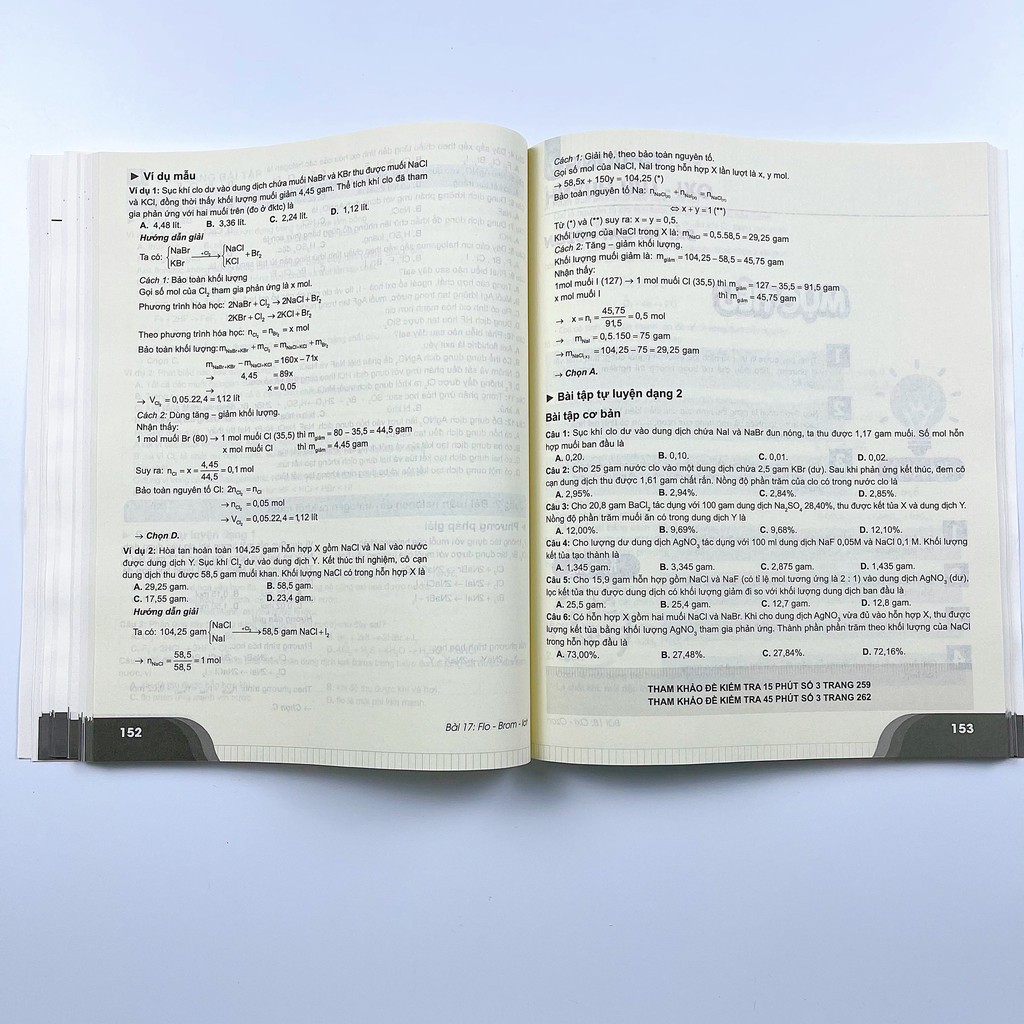 ► Ví dụ mẫu
Ví dụ 1: Sục khí clo dư vào dung dịch chứa muối NaBr và KBr thu được muối NaCl
và KCl, đồng thời thấy khối lượng muối giảm 4,45 gam. Thể tích khí clo đã tham
gia phản ứng với hai muối trên (đo ở đktc) là
A. 4,48 lít. B. 3,36 lít. C. 2,24 lít. D. 1,12 lít.
Hướng dẫn giải
Ta có: {NaBr KBr —+Cl₂→ {NaCl KCl + Br₂
Cách 1: Bảo toàn khối lượng
Gọi số mol của Cl₂ tham gia phản ứng là x mol.
Phương trình hóa học: 2NaBr + Cl₂ → 2NaCl + Br₂
2KBr + Cl₂ → 2KCl + Br₂
Theo phương trình hóa học: n_Cl₂ = n_Br₂ = x mol
Bảo toàn khối lượng: m_NaBr+KBr + m_Cl₂ = m_NaCl+KCl + m_Br₂
m_NaBr+KBr − m_NaCl+KCl = 160x − 71x
→ 4,45 = 89x
→ x = 0,05
→ V_Cl₂ = 0,05.22,4 = 1,12 lít
Cách 2: Dùng tăng – giảm khối lượng.
Nhận thấy:
1 mol muối Br (80) → 1 mol muối Cl (35,5) thì m_giảm = 80 − 35,5 = 44,5 gam
x mol muối Cl thì m_giảm = 4,45 gam
Suy ra: n_Cl = x = 4,45/44,5 = 0,1 mol
Bảo toàn nguyên tố Cl: 2n_Cl₂ = n_Cl
→ n_Cl₂ = 0,05 mol
→ V_Cl₂ = 0,05.22,4 = 1,12 lít
→ Chọn D.
Ví dụ 2: Hòa tan hoàn toàn 104,25 gam hỗn hợp X gồm NaCl và NaI vào nước
được dung dịch Y. Sục khí Cl₂ dư vào dung dịch Y. Kết thúc thí nghiệm, cô cạn
dung dịch thu được 58,5 gam muối khan. Khối lượng NaCl có trong hỗn hợp X là
A. 29,25 gam. B. 58,5 gam.
C. 17,55 gam. D. 23,4 gam.
Hướng dẫn giải
Ta có: 104,25 gam {NaCl NaI —+Cl₂→ 58,5 gam NaCl + I₂
→ n_NaCl = 58,5/58,5 = 1 mol
152
Bài 17: Flo - Brom - Iot
Cách 1: Giải hệ, theo bảo toàn nguyên tố.
Gọi số mol của NaCl, NaI trong hỗn hợp X lần lượt là x, y mol.
→ 58,5x + 150y = 104,25 (*)
Bảo toàn nguyên tố Na: n_NaCl(X) + n_NaI(X) = n_NaCl(Y)
⇔ x + y = 1 (**)
Từ (*) và (**) suy ra: x = y = 0,5.
Khối lượng của NaCl trong X là: m_NaCl = 0,5.58,5 = 29,25 gam
Cách 2: Tăng – giảm khối lượng.
Khối lượng muối giảm là: m_giảm = 104,25 − 58,5 = 45,75 gam
Nhận thấy:
1mol muối I (127) → 1 mol muối Cl (35,5) thì m_giảm = 127 − 35,5 = 91,5 gam
x mol muối I thì m_giảm = 45,75 gam
→ x = n_I = 45,75/91,5 = 0,5 mol
→ m_NaI = 0,5.150 = 75 gam
→ m_NaCl(X) = 104,25 − 75 = 29,25 gam
→ Chọn A.
► Bài tập tự luyện dạng 2
Bài tập cơ bản
Câu 1: Sục khí clo dư vào dung dịch chứa NaI và NaBr đun nóng, ta thu được 1,17 gam muối. Số mol hỗn
hợp muối ban đầu là
A. 0,20. B. 0,10. C. 0,01. D. 0,02.
Câu 2: Cho 25 gam nước clo vào một dung dịch chứa 2,5 gam KBr (dư). Sau khi phản ứng kết thúc, đem cô
cạn dung dịch thu được 1,61 gam chất rắn. Nồng độ phần trăm của clo có trong nước clo là
A. 2,95%. B. 2,94%. C. 2,84%. D. 2,85%.
Câu 3: Cho 20,8 gam BaCl₂ tác dụng với 100 gam dung dịch Na₂SO₄ 28,40%, thu được kết tủa X và dung dịch Y.
Nồng độ phần trăm muối ăn có trong dung dịch Y là
A. 12,00%. B. 9,69%. C. 9,68%. D. 12,10%.
Câu 4: Cho lượng dư dung dịch AgNO₃ tác dụng với 100 ml dung dịch NaF 0,05M và NaCl 0,1 M. Khối lượng
kết tủa tạo thành là
A. 1,345 gam. B. 3,345 gam. C. 2,875 gam. D. 1,435 gam.
Câu 5: Cho 15,9 gam hỗn hợp gồm NaCl và NaF (có tỉ lệ mol tương ứng là 2 : 1) vào dung dịch AgNO₃ (dư),
lọc kết tủa thu được dung dịch có khối lượng giảm đi so với khối lượng dung dịch ban đầu là
A. 25,5 gam. B. 25,4 gam. C. 12,7 gam. D. 12,8 gam.
Câu 6: Có hỗn hợp X gồm hai muối NaCl và NaBr. Khi cho dung dịch AgNO₃ vừa đủ vào hỗn hợp X, thu được
lượng kết tủa bằng khối lượng AgNO₃ tham gia phản ứng. Thành phần phần trăm theo khối lượng của NaCl
trong hỗn hợp đầu là
A. 73,00%. B. 27,48%. C. 27,84%. D. 72,16%.
THAM KHẢO ĐỀ KIỂM TRA 15 PHÚT SỐ 3 TRANG 259
THAM KHẢO ĐỀ KIỂM TRA 45 PHÚT SỐ 3 TRANG 262
153